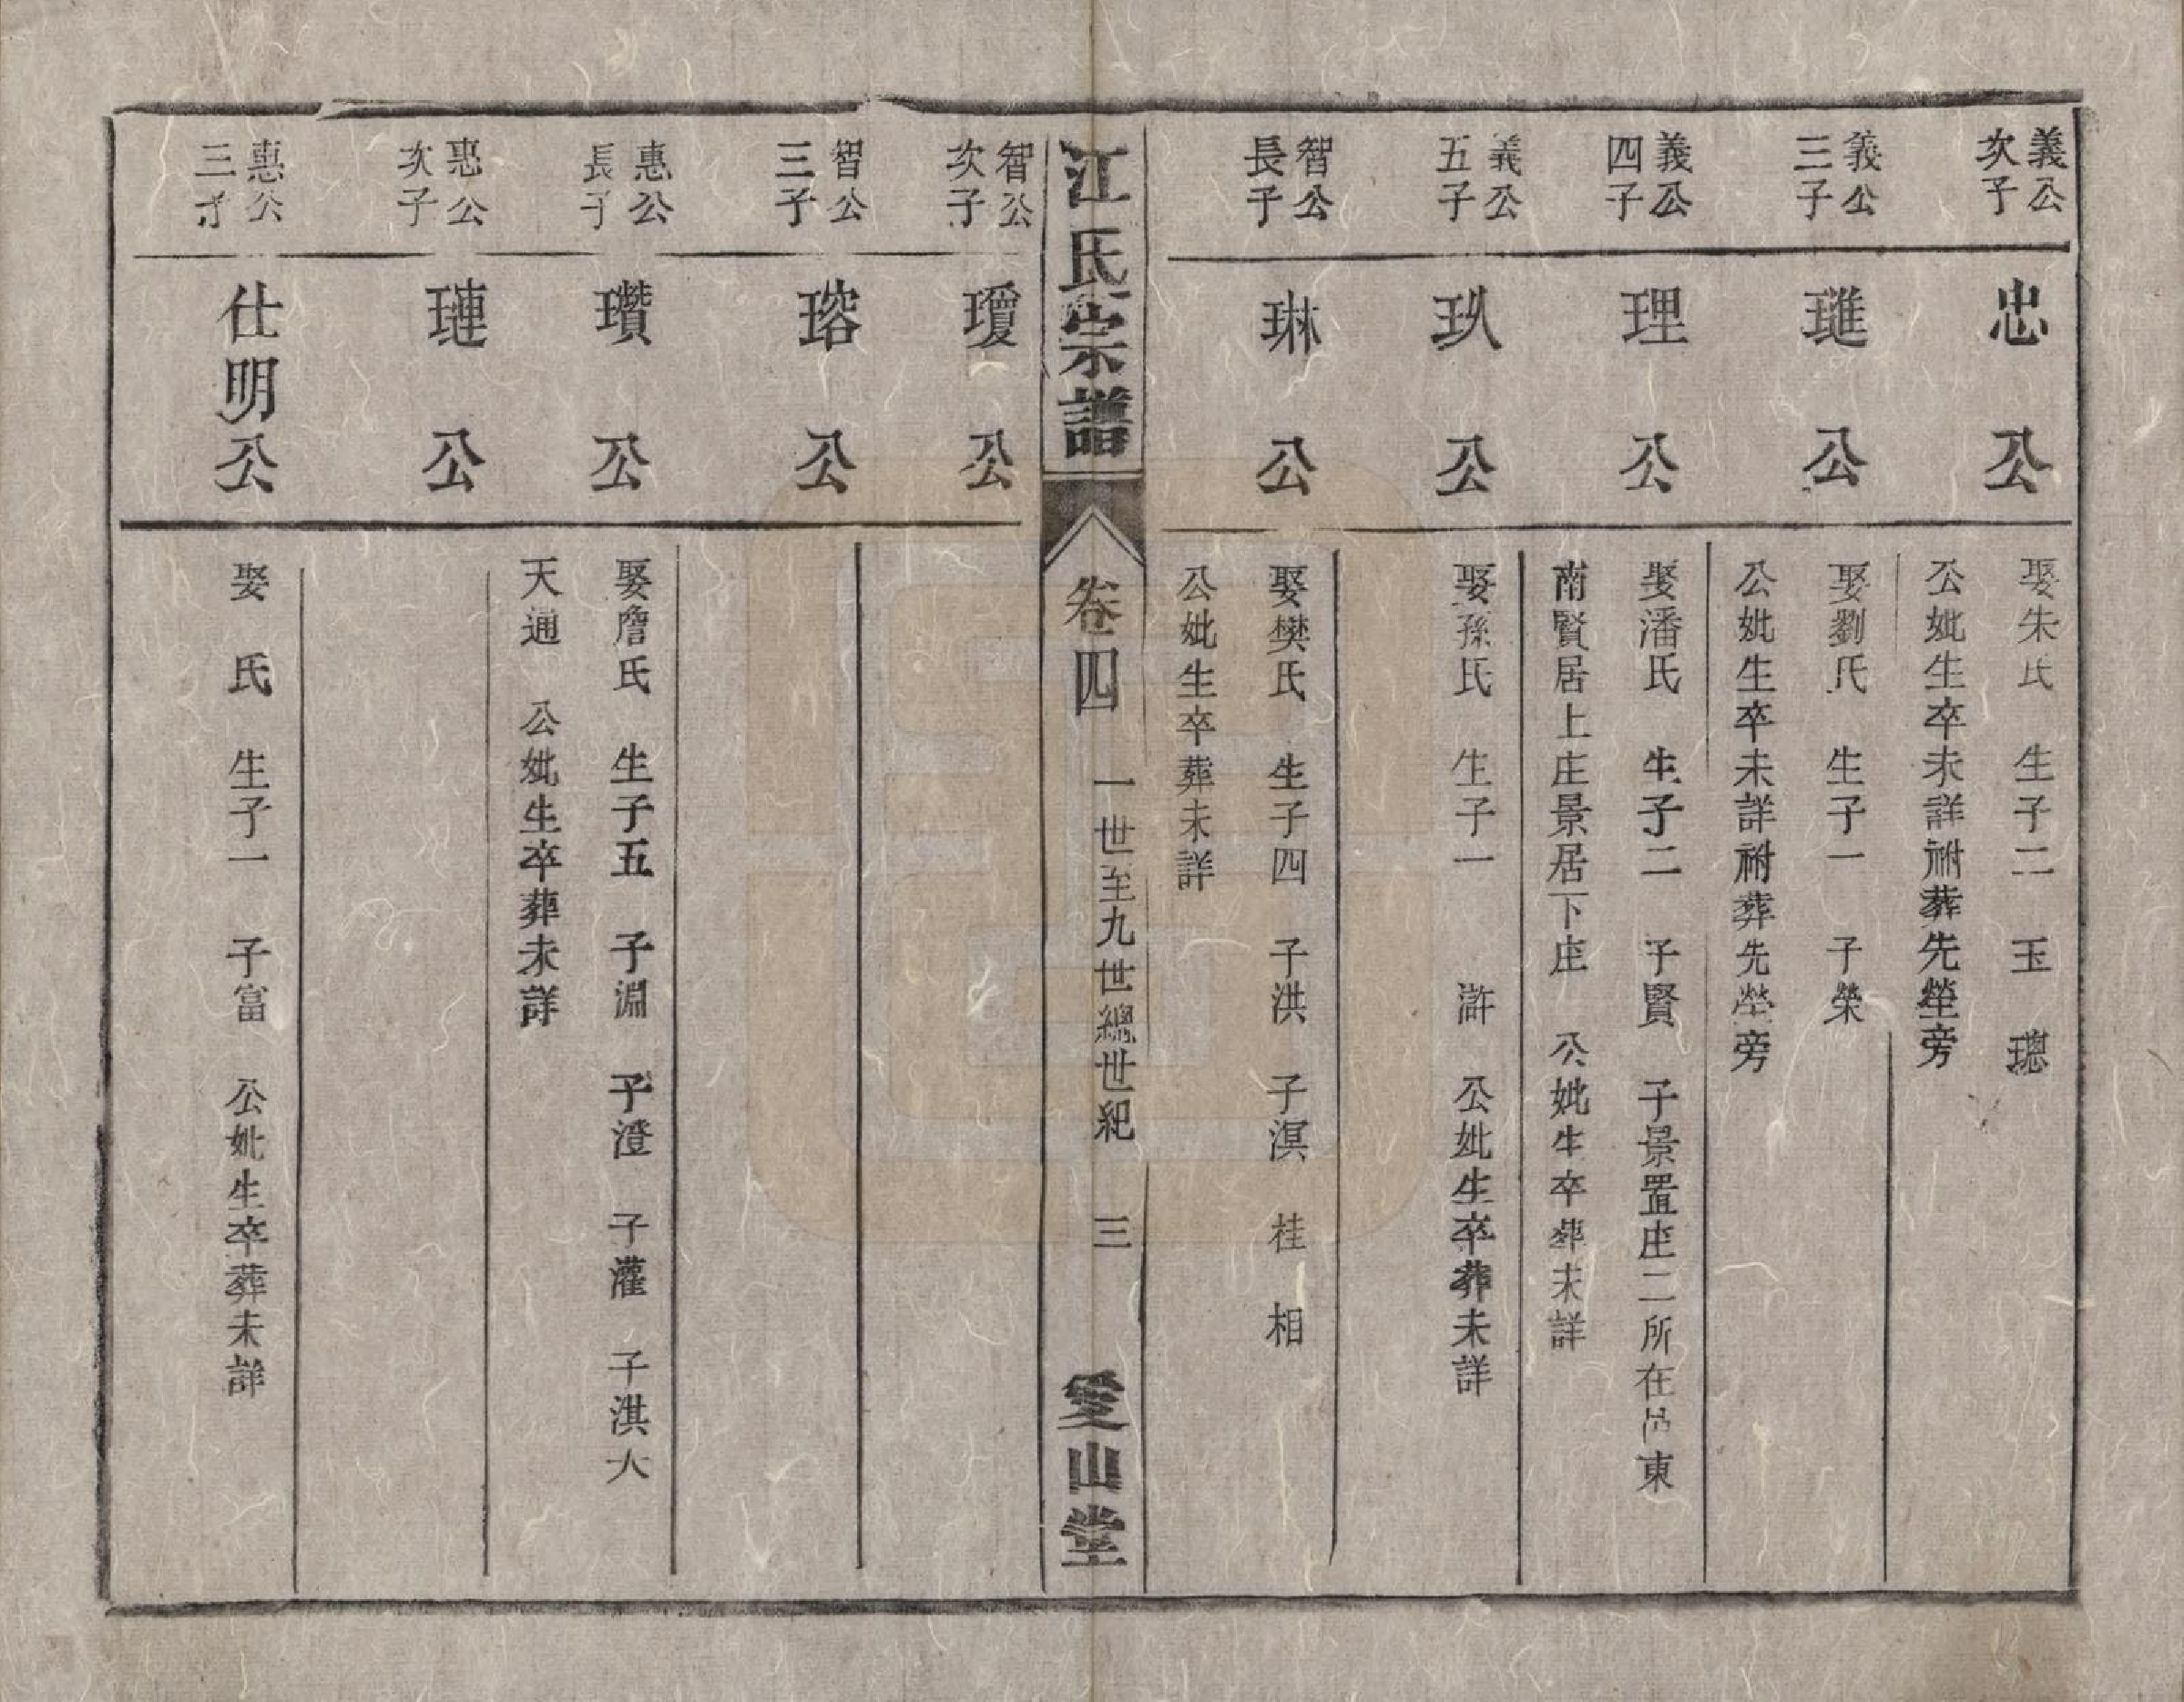 義公
次子
忠公
娶朱氏 生子二 玉 璁
公妣生卒未詳祔葬先塋旁
義公
三子
璡公
娶劉氏 生子一 子榮
公妣生卒未詳祔葬先塋旁
義公
四子
理公
娶潘氏 生子二 子賢 子景置庄二所在呂東
南賢居上庄景居下庄 公妣生卒葬未詳
義公
五子
玖公
娶孫氏 生子一 滸 公妣生卒葬未詳
智公
長子
琳公
娶樊氏 生子四 子洪 子溟 桂 相
公妣生卒葬未詳
江氏宗譜
卷四 一世至九世總世紀 三
愛山堂
智公
次子
瓊公
智公
三子
瑢公
惠公
長子
瓚公
娶詹氏 生子五 子淵 子澄 子灌 子淇大
天通 公妣生卒葬未詳
惠公
次子
璉公
惠公
三子
仕明公
娶 氏 生子一 子富 公妣生卒葬未詳